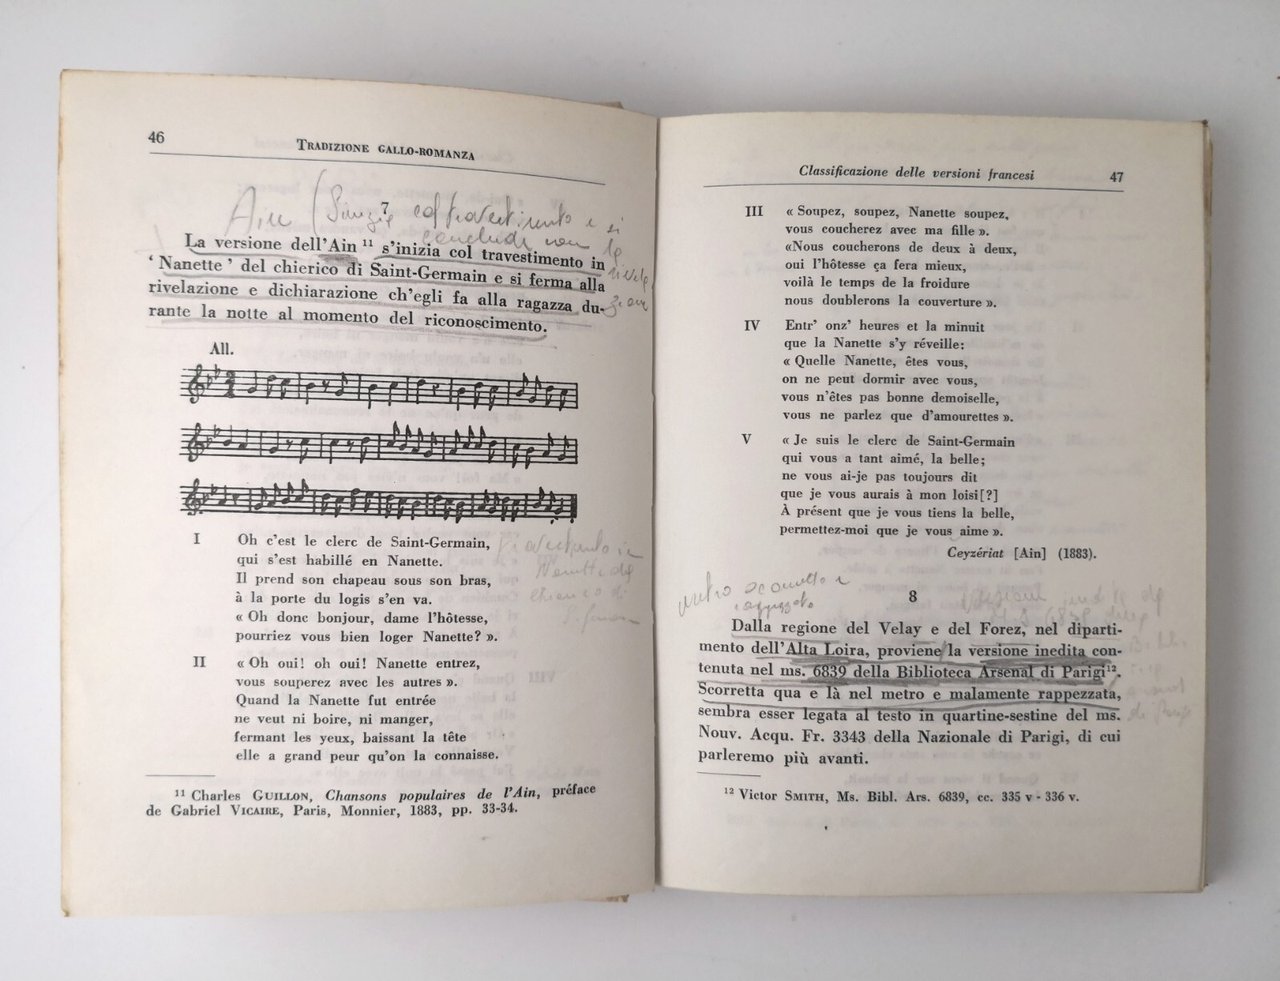 46
TRADIZIONE GALLO-ROMANZA
Ain
7
La versione dell'Ain ¹¹ s'inizia col travestimento in
'Nanette' del chierico di Saint-Germain e si ferma alla
rivelazione e dichiarazione ch'egli fa alla ragazza du-
rante la notte al momento del riconoscimento.
All.
I Oh c'est le clerc de Saint-Germain,
qui s'est habillé en Nanette.
Il prend son chapeau sous son bras,
à la porte du logis s'en va.
« Oh donc bonjour, dame l'hôtesse,
pourriez vous bien loger Nanette? ».
II « Oh oui! oh oui! Nanette entrez,
vous souperez avec les autres ».
Quand la Nanette fut entrée
ne veut ni boire, ni manger,
fermant les yeux, baissant la tête
elle a grand peur qu'on la connaisse.
¹¹ Charles GUILLON, Chansons populaires de l'Ain, préface
de Gabriel VICAIRE, Paris, Monnier, 1883, pp. 33-34.
Classificazione delle versioni francesi
47
III « Soupez, soupez, Nanette soupez,
vous coucherez avec ma fille ».
«Nous coucherons de deux à deux,
oui l'hôtesse ça fera mieux,
voilà le temps de la froidure
nous doublerons la couverture ».
IV Entr' onz' heures et la minuit
que la Nanette s'y réveille:
« Quelle Nanette, êtes vous,
on ne peut dormir avec vous,
vous n'êtes pas bonne demoiselle,
vous ne parlez que d'amourettes ».
V « Je suis le clerc de Saint-Germain
qui vous a tant aimé, la belle;
ne vous ai-je pas toujours dit
que je vous aurais à mon loisi[?]
À présent que je vous tiens la belle,
permettez-moi que je vous aime ».
Ceyzériat [Ain] (1883).
8
Dalla regione del Velay e del Forez, nel diparti-
mento dell'Alta Loira, proviene la versione inedita con-
tenuta nel ms. 6839 della Biblioteca Arsenal di Parigi¹².
Scorretta qua e là nel metro e malamente rappezzata,
sembra esser legata al testo in quartine-sestine del ms.
Nouv. Acqu. Fr. 3343 della Nazionale di Parigi, di cui
parleremo più avanti.
¹² Victor SMITH, Ms. Bibl. Ars. 6839, cc. 335 v - 336 v.